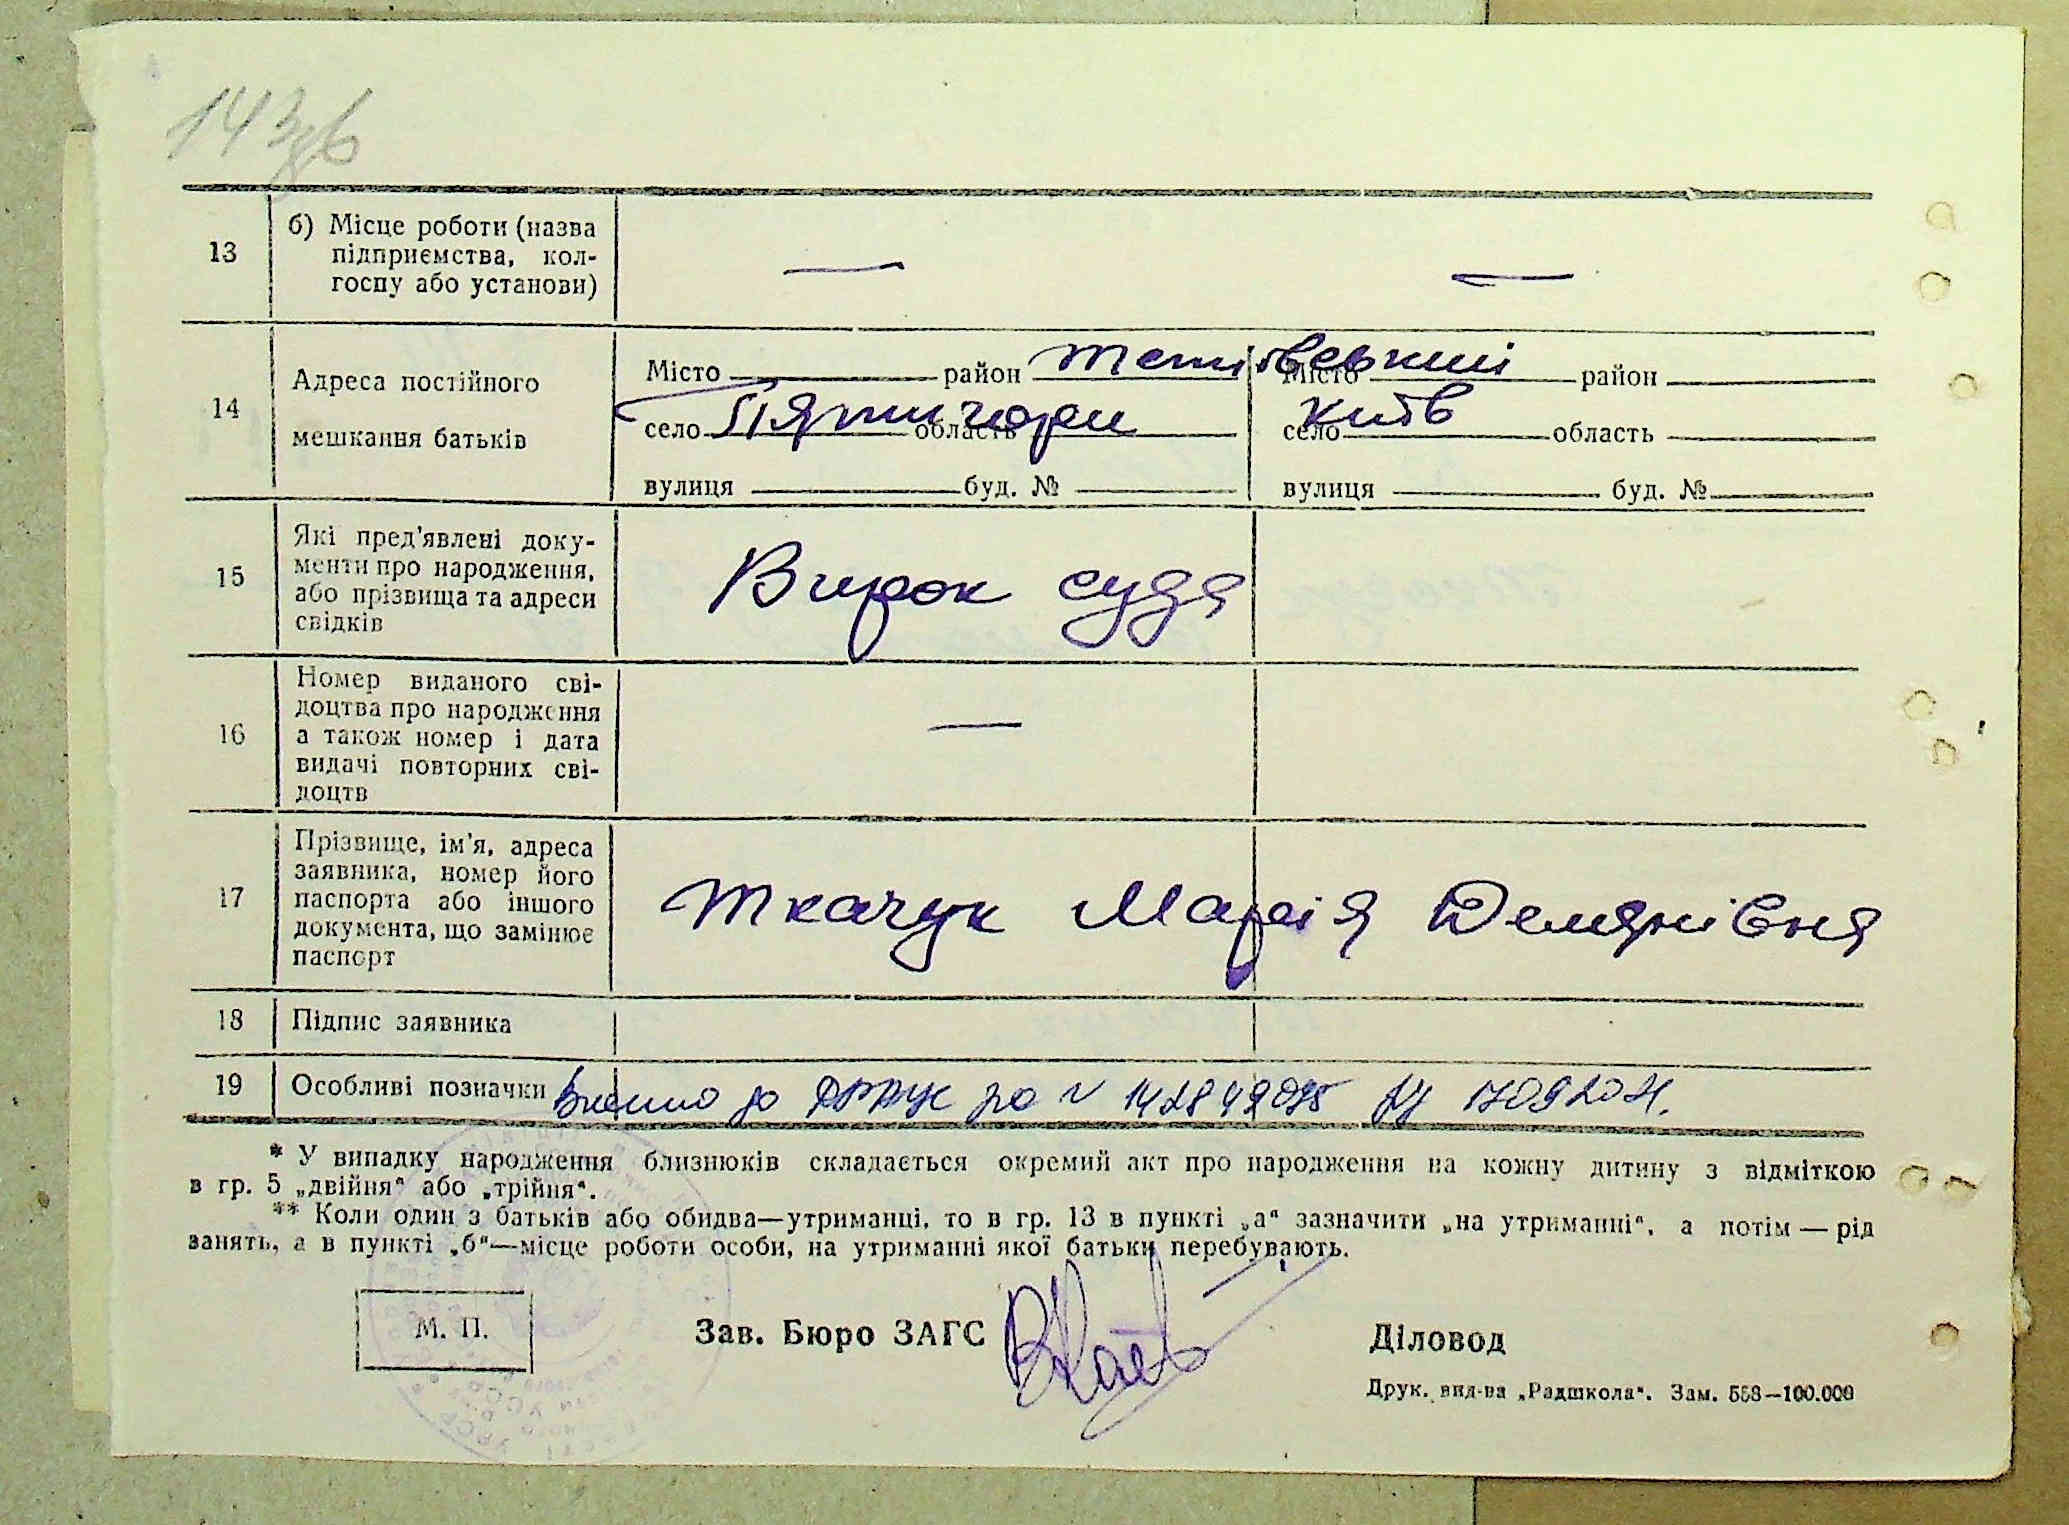 143зв
13 б) Місце роботи (назва
підприємства, кол-
госпу або установи) — —
14 Адреса постійного
мешкання батьків
Місто район Тетіївський Місто район
село П'ятигори область Київ село область
вулиця буд. № вулиця буд. №
15 Які пред'явлені доку-
менти про народження,
або прізвища та адреси
свідків
Вирок суда
16 Номер виданого сві-
доцтва про народження
а також номер і дата
видачі повторних сві-
доцтв —
17 Прізвище, ім'я, адреса
заявника, номер його
паспорта або іншого
документа, що замінює
паспорт
Ткачук Марія Демянівна
18 Підпис заявника
19 Особливі позначки Внесено до ДРАЦС за №
* У випадку народження близнюків складається окремий акт про народження на кожну дитину з відміткою
в гр. 5 „двійня“ або „трійня“.
** Коли один з батьків або обидва—утриманці, то в гр. 13 в пункті „а“ зазначити „на утриманні“, а потім — рід
занять, а в пункті „б“—місце роботи особи, на утриманні якої батьки перебувають.
М. П. Зав. Бюро ЗАГС Діловод
Друк. вид-ва „Радшкола“. Зам. 558—100.000